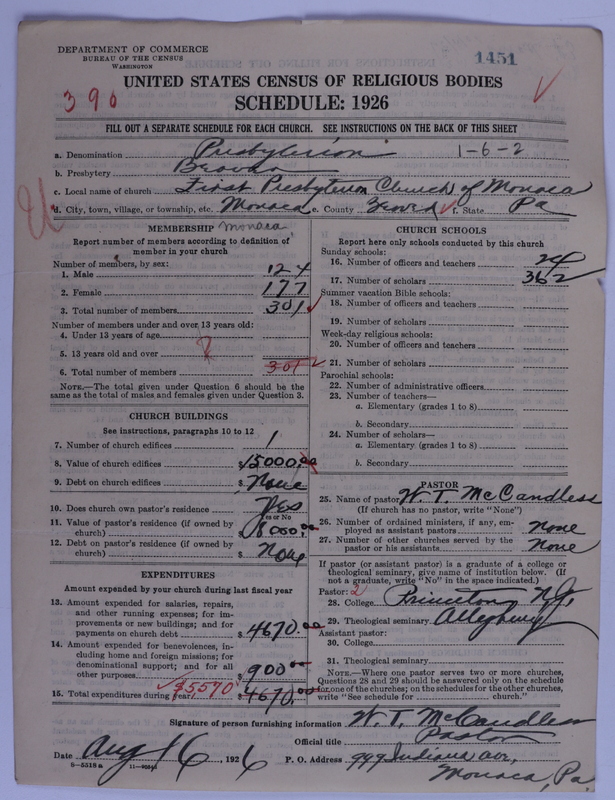 DEPARTMENT OF COMMERCE
BUREAU OF THE CENSUS
WASHINGTON
1451
UNITED STATES CENSUS OF RELIGIOUS BODIES
390
SCHEDULE: 1926
FILL OUT A SEPARATE SCHEDULE FOR EACH CHURCH. SEE INSTRUCTIONS ON THE BACK OF THIS SHEET
a. Denomination Presbyterian 1-6-2
b. Presbytery Beaver
c. Local name of church First Presbyterian Church of Monaca
d. City, town, village, or township, etc. Monaca e. County Beaver f. State Pa
MEMBERSHIP Monaca
Report number of members according to definition of
member in your church
Number of members, by sex:
1. Male 124
2. Female 177
3. Total number of members 301
Number of members under and over 13 years old:
4. Under 13 years of age
5. 13 years old and over
6. Total number of members 301
NOTE.—The total given under Question 6 should be
same as the total of males and females given under Question 3.
CHURCH BUILDINGS
See instructions, paragraphs 10 to 12
7. Number of church edifices 1
8. Value of church edifices $15000.00
9. Debt on church edifices $ None
10. Does church own pastor's residence Yes
Yes or No
11. Value of pastor's residence (if owned by
church) $8000.00
12. Debt on pastor's residence (if owned by
church) $ None
EXPENDITURES
Amount expended by your church during last fiscal year
13. Amount expended for salaries, repairs,
and other running expenses; for im-
provements or new buildings; and for
payments on church debt $4670.00
14. Amount expended for benevolences, in-
cluding home and foreign missions; for
denominational support; and for all
other purposes $900.00
15. Total expenditures during year $5570 $4670.00
CHURCH SCHOOLS
Report here only schools conducted by this church
Sunday schools:
16. Number of officers and teachers 24
17. Number of scholars 362
Summer vacation Bible schools:
18. Number of officers and teachers
19. Number of scholars
Week-day religious schools:
20. Number of officers and teachers
21. Number of scholars
Parochial schools:
22. Number of administrative officers
23. Number of teachers—
a. Elementary (grades 1 to 8)
b. Secondary
24. Number of scholars—
a. Elementary (grades 1 to 8)
b. Secondary
PASTOR
25. Name of pastor W. T. McCandless
(If church has no pastor, write "None")
26. Number of ordained ministers, if any, em-
ployed as assistant pastors None
27. Number of other churches served by the
pastor or his assistants None
If pastor (or assistant pastor) is a graduate of a college or
theological seminary, give name of institution below. (If
not a graduate, write "No" in the space indicated.)
Pastor: 2
28. College Princeton N.J.
29. Theological seminary Allegheny
Assistant pastor:
30. College
31. Theological seminary
NOTE.—Where one pastor serves two or more churches,
Questions 28 and 29 should be answered only on the schedule
for one of the churches; on the schedules for the other churches,
write "See schedule for church."
Signature of person furnishing information W. T. McCandless
Official title Pastor
Date Aug 16, 1926 P. O. Address 999 Indiana ave,
Monaca, Pa.
8—5518 a